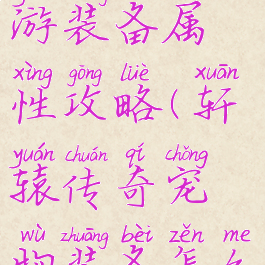 游装备属
xìng gōng lüè xuān
性攻略(轩
yuán chuán qí chǒng
辕传奇宠
wù zhuāng bèi zěn me
物装备怎么